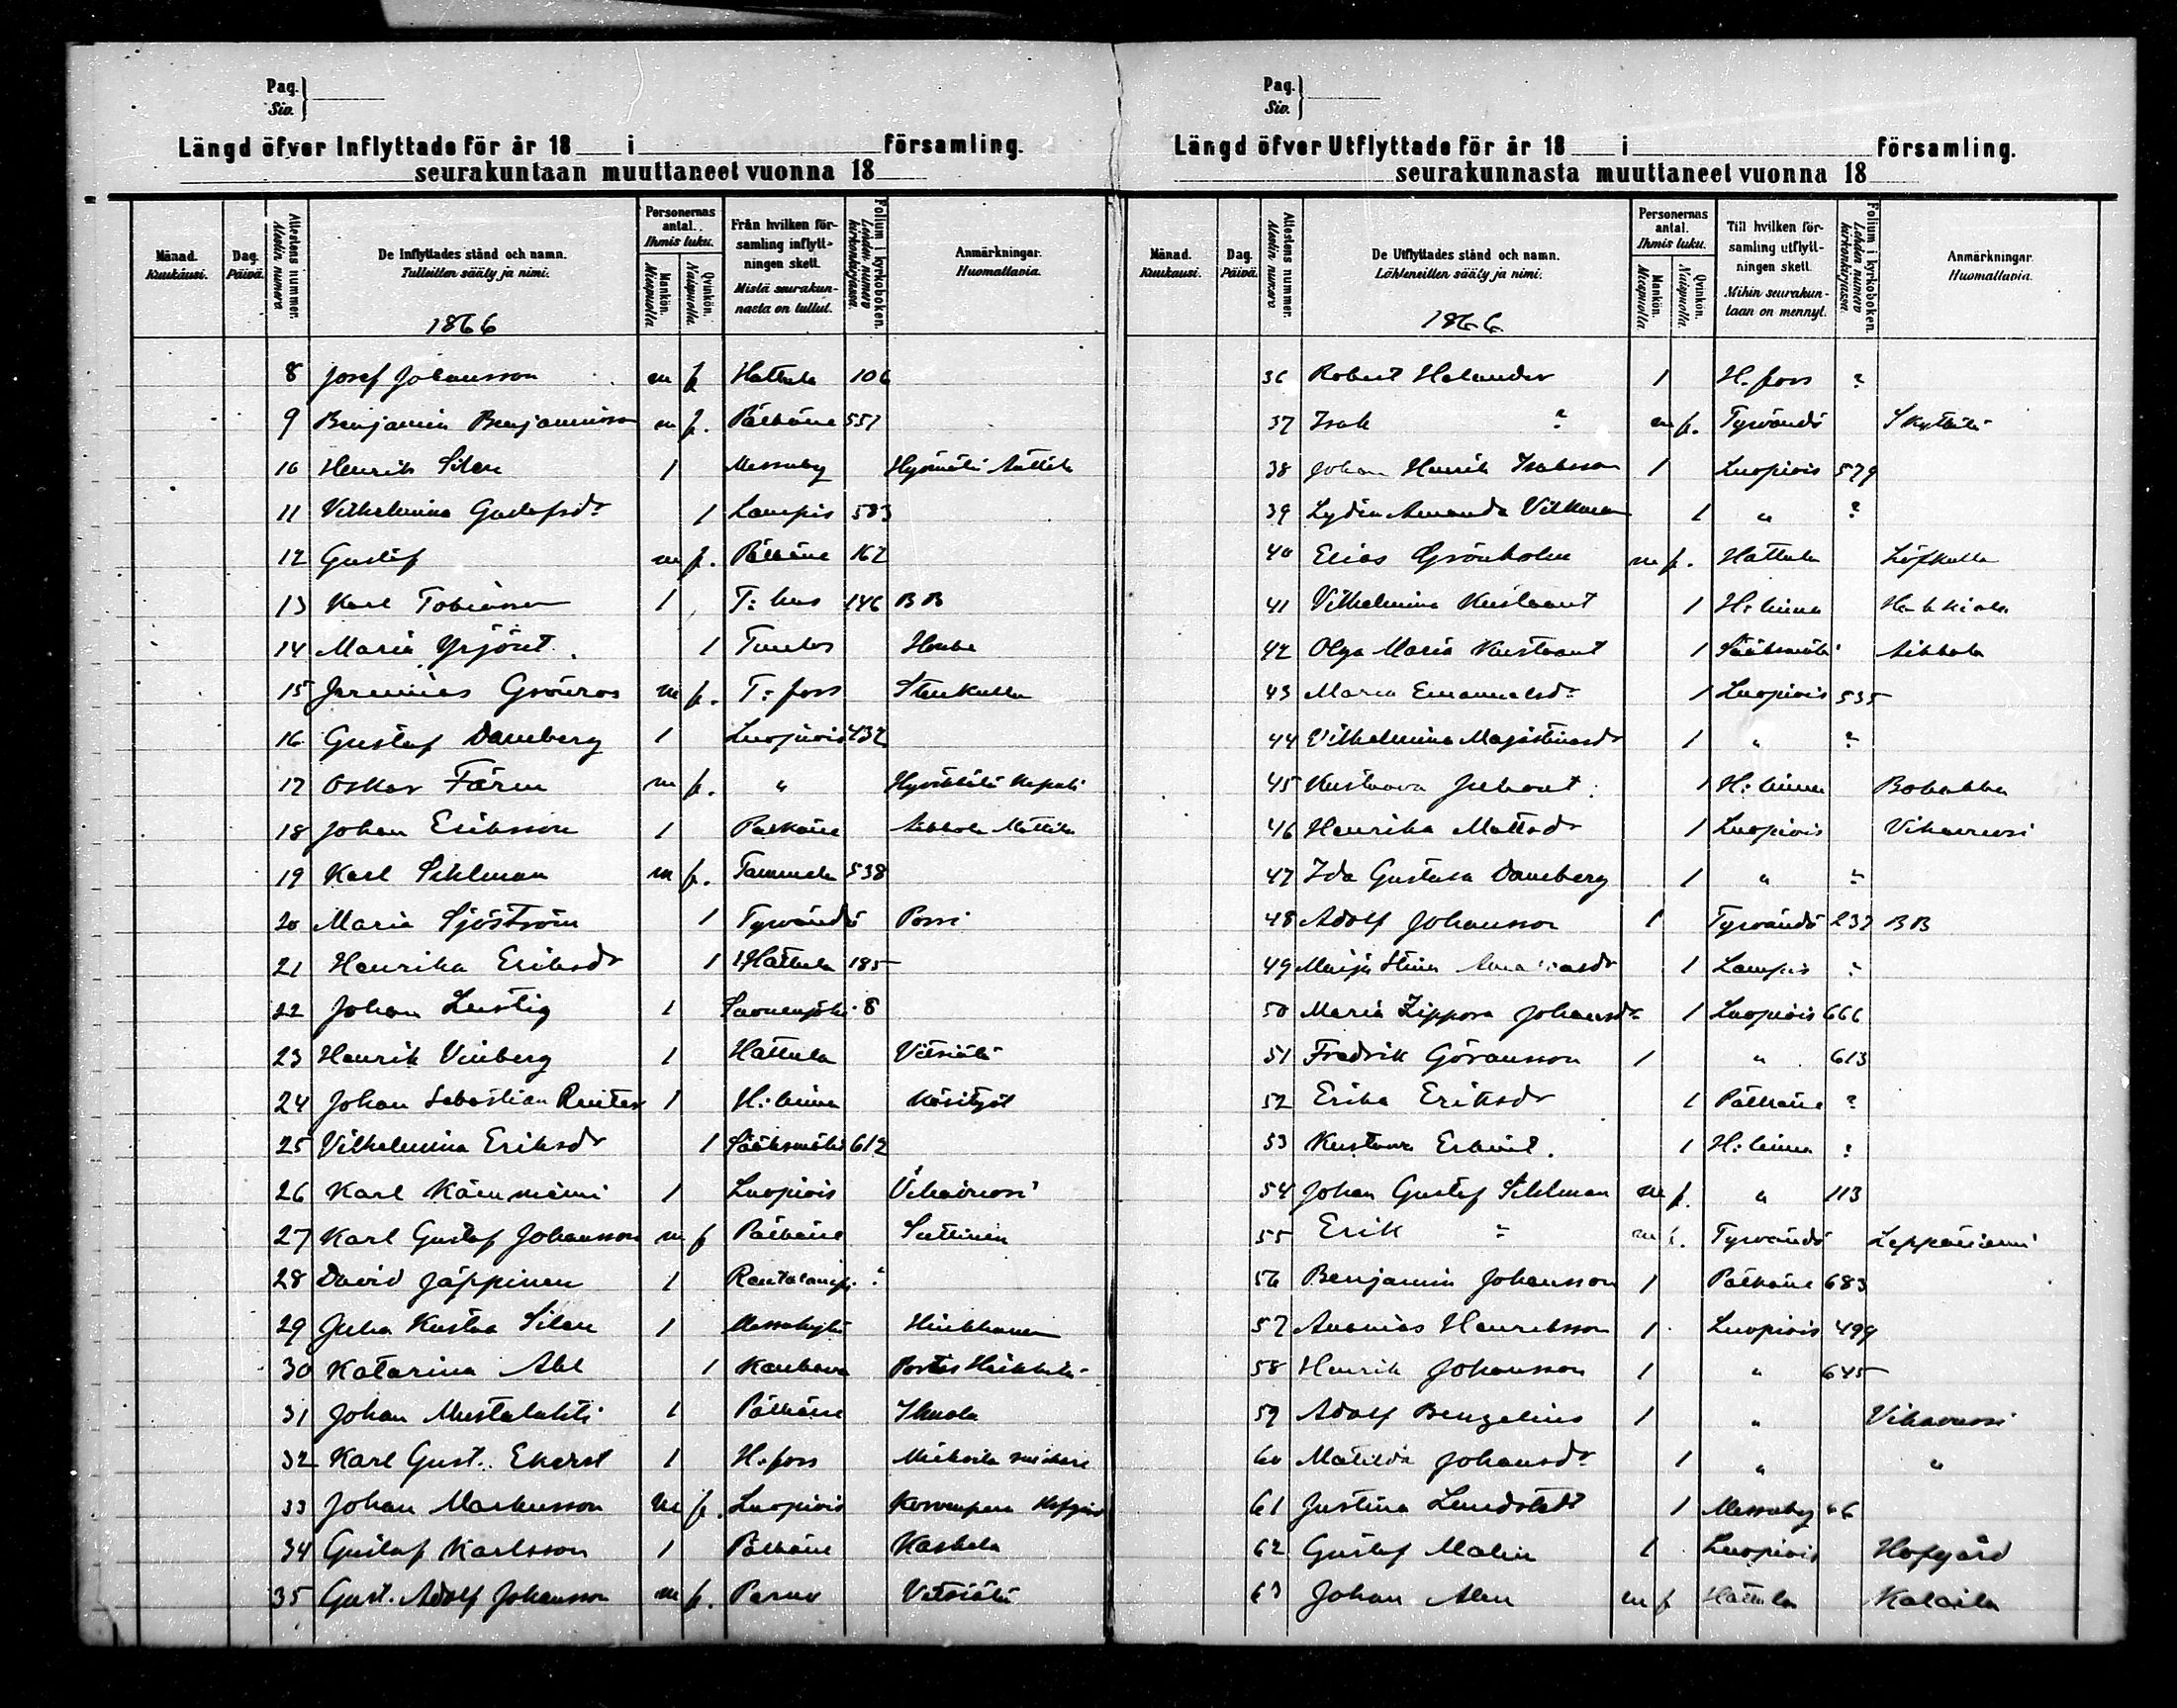 Pag.
Siv.
Längd öfver Inflyttade för år 18 i församling.
seurakuntaan muuttaneet vuonna 18
Månad. Kuukausi.
Dag. Päivä.
Attestens nummer. Alestin numero
De Inflyttades stånd och namn.
Tulleitten sääty ja nimi.
1866
Personernas antal.
Ihmis luku.
Mankön. Miespuolia
Qvinkön. Naispuolia
Från hvilken församling inflyttningen skett.
Mistä seurakunnasta on tullut.
Folium i kyrkoboken.
Lehden numero kirkonkirjassa.
Anmärkningar.
Huomattavia.
8 Josef Johansson m f Hattula 106
9 Benjamin Benjaminsson m f. Pälkäne 557
10 Henrik Silen 1 Messuby
11 Vilhelmina Gustafsdr 1 Lampis 583
12 Gustaf m f. Pälkäne 162
13 Karl Tobiasson 1 T:hus 146 BB
14 Maria Yrjönt. 1 Tuulos
15 Jeremias Grönros m f. T:fors Stenkulla
16 Gustaf Damberg 1 Luopiois 432
17 Oskar Fären m f. "
18 Johan Eriksson 1 Pälkäne
19 Karl Sihlman m f. Tammela 538
20 Maria Sjöström 1 Tyrvändö
21 Henrika Eriksdr 1 Hattula 185
22 Johan Lustig 1 8
23 Henrik Vinberg 1 Hattula Vitsiälä
24 Johan Sebastian Reuter 1 H:linna
25 Vilhelmina Eriksdr 1 Sääksmäki 612
26 Karl Känmäini 1 Luopiois Vihavuosi
27 Karl Gustaf Johansson m f Pälkäne Suttinen
28 David Jäppinen 1 Rautalampi ?
29 Juha Kustaa Silen 1 Messukylä
30 Katarina Ahl 1 Kauhava
31 Johan Mustalahti 1 Pälkäne Ihnola
32 Karl Gust. Ekerst 1 H.fors
33 Johan Markusson m f. Luopiois
34 Gustaf Karlsson 1 Pälkäne Kaskela
35 Gust. Adolf Johansson m f. Perno Vitsiälä
Pag.
Siv.
Längd öfver Utflyttade för år 18 i församling.
seurakunnasta muuttaneet vuonna 18
Månad. Kuukausi.
Dag. Päivä.
Attestens nummer. Alestin numero
De Utflyttades stånd och namn.
Lähteneitten sääty ja nimi.
1866
Personernas antal.
Ihmis luku.
Mankön. Miespuolia
Qvinkön. Naispuolia
Till hvilken församling utflyttningen skett.
Mihin seurakuntaan on mennyt.
Folium i kyrkoboken.
Lehden numero kirkonkirjassa.
Anmärkningar.
Huomattavia.
36 Robert Helander 1 H.fors ?
37 Isak ? m f. Tyrvändö Skyttälä
38 Johan Henrik Isaksson 1 Luopiois 579
39 Lydia Amanda Vilkman 1 " ?
40 Elias Grönholm m f. Hattula Löfkulla
41 Vilhelmina Kustaant 1 H:linna
42 Olga Maria Kustaant 1 Sääksmäki
43 Maria Emanuelsdr 1 Luopiois 535
44 Vilhelmina 1 " ?
45 Kustaava Juhont. 1 H:linna
46 Henrika Mattsdr 1 Luopiois Vihavuosi
47 Ida Gustava Damberg 1 " ?
48 Adolf Johansson 1 Tyrvändö 237 BB
49 Maija Stina 1 Lampis ?
50 Maria Zippora Johansdr 1 Luopiois 666
51 Fredrik Göransson 1 " 613
52 Erika Eriksdr 1 Pälkäne ?
53 Kustaava Erkint. 1 H:linna ?
54 Johan Gustaf Sihlman m f. " 113
55 Erik ? m f. Tyrvändö Leppäniemi
56 Benjamin Johansson 1 Pälkäne 683
57 Ananias Henriksson 1 Luopiois 499
58 Henrik Johansson 1 " 645
59 Adolf Bengelius 1 " Vihavuosi
60 Matilda Johansdr 1 " "
61 Justina Lundstedt 1 Messuby 66
62 Gustaf Malin 1 Luopiois Hofgård
63 Johan Alen m f Hattula Kalaila